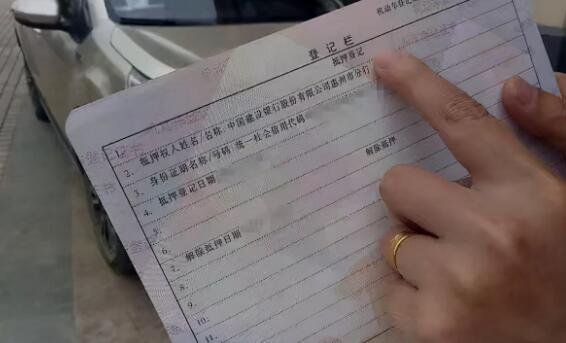 机动车登记
登记栏
1. 抵押登记
2. 抵押权人姓名/名称: 中国建设银行股份有限公司惠州市分行
3. 身份证明名称/号码: 统一社会信用代码
4. 抵押登记日期
5.
6. 解除抵押
7. 解除抵押日期
8.
9.
10.
11.